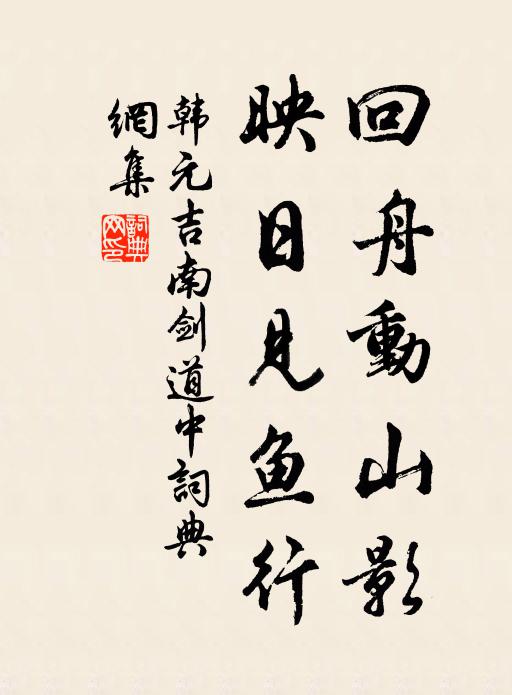 回舟動山影
映日見鱼行
韩元吉南剑道中詞典
網集
詞典
网印